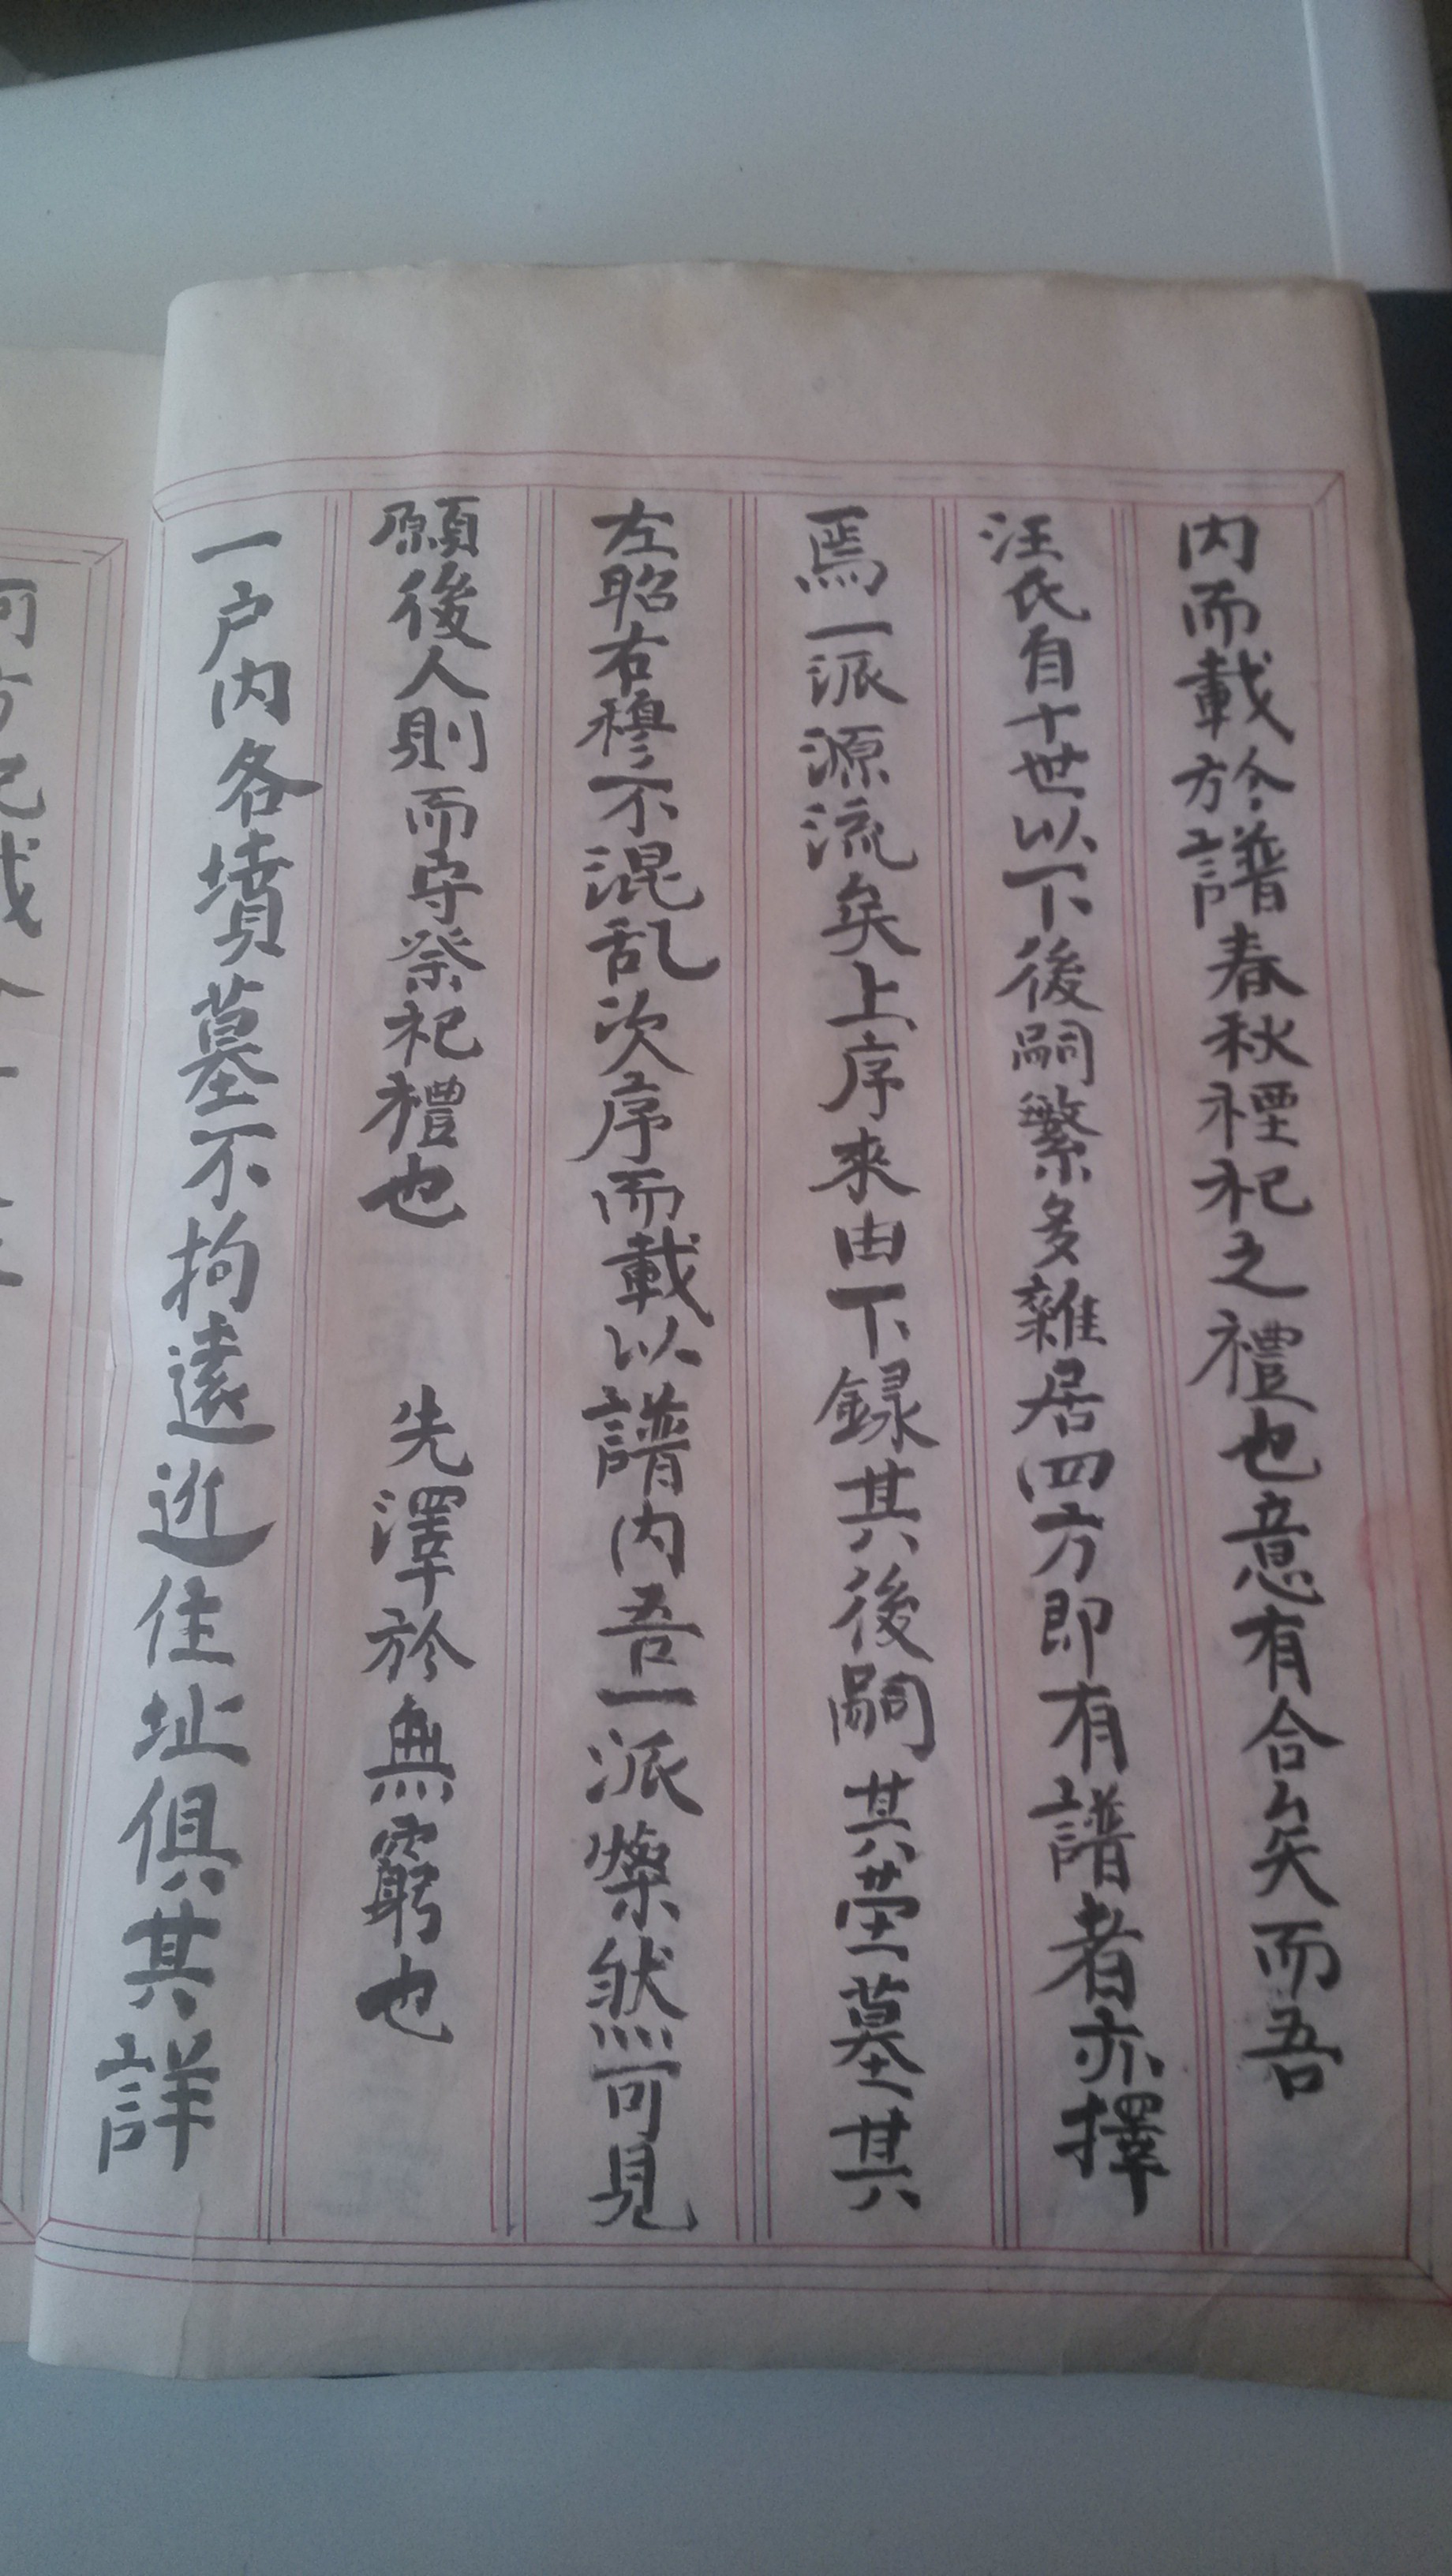 內而載於譜春秋禋祀之禮也意有合矣而吾
汪氏自十世以下後嗣繁多雜居四方即有譜者亦擇
焉一派源流矣上序來由下録其後嗣其茔墓其
左昭右穆不混乱次序而載以譜内吾一派燦然可見
願後人則而守祭祀禮也 先澤於無窮也
一户内各墳墓不拘遠近住址俱其詳